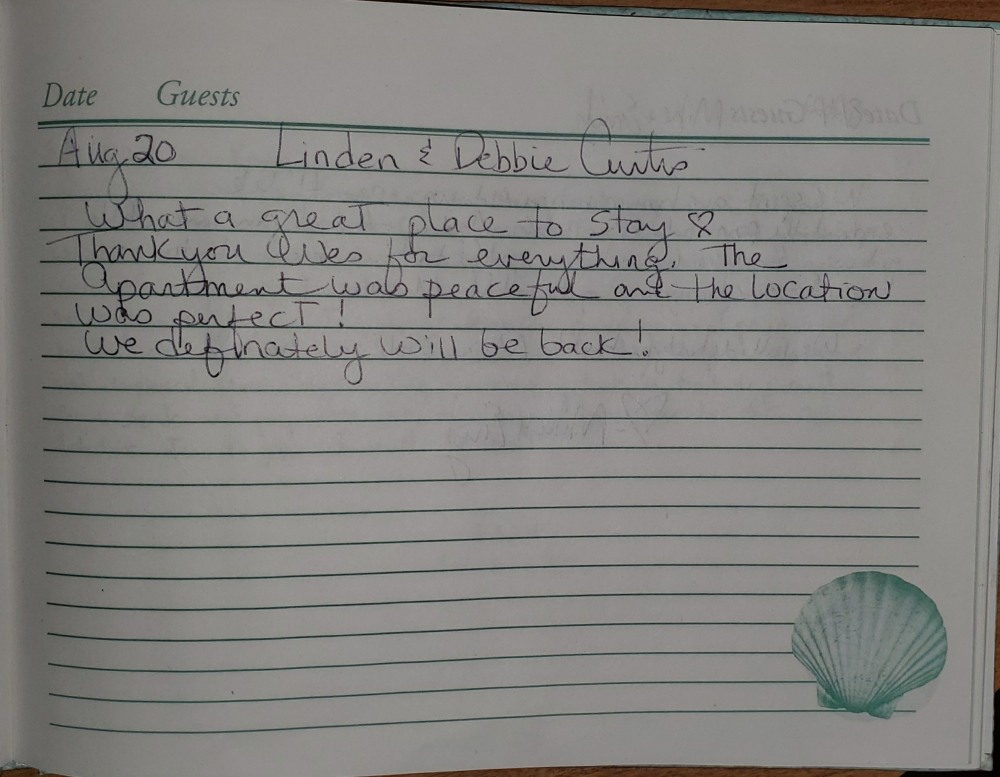 Date Guests
Aug 20 Linden & Debbie Curtis
What a great place to stay ♡
Thank you Ives for everything. The
apartment was peaceful and the location
was perfect!
We definately will be back!